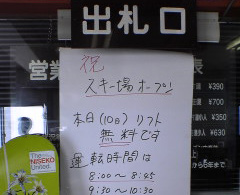 出札口
営業
表
¥390
¥700
¥350
¥630
祝
スキー場オープン!
本日(10日)リフト
無料です
運転時間は
8:00〜8:45
9:30〜10:30
The
NISEKO
United.